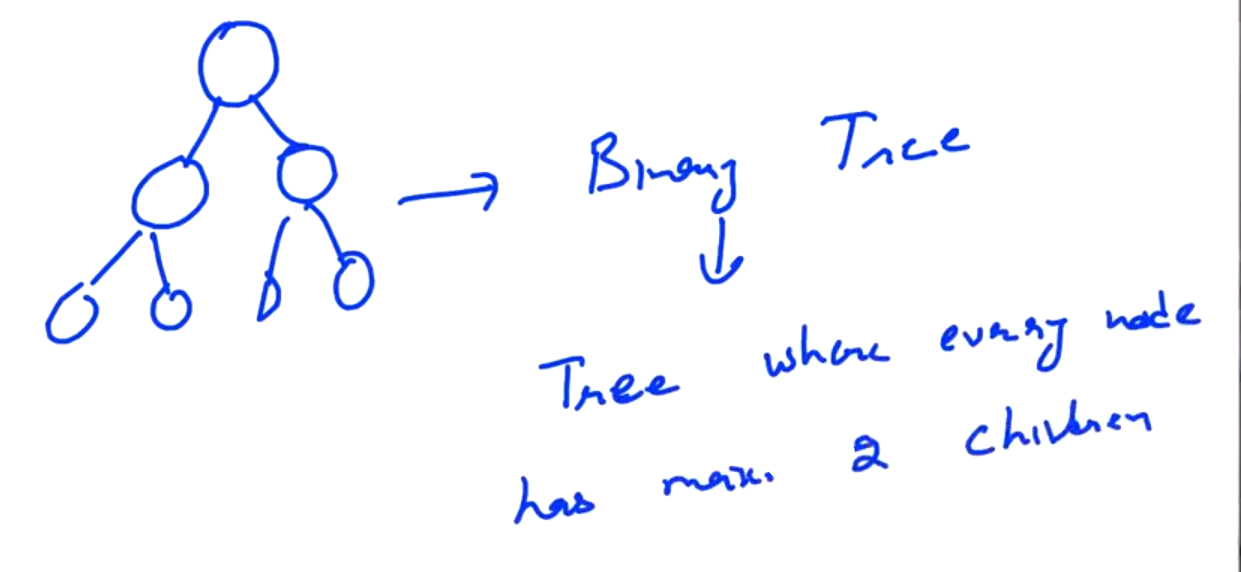 Binary Tree
Tree where every node
has max. 2 children